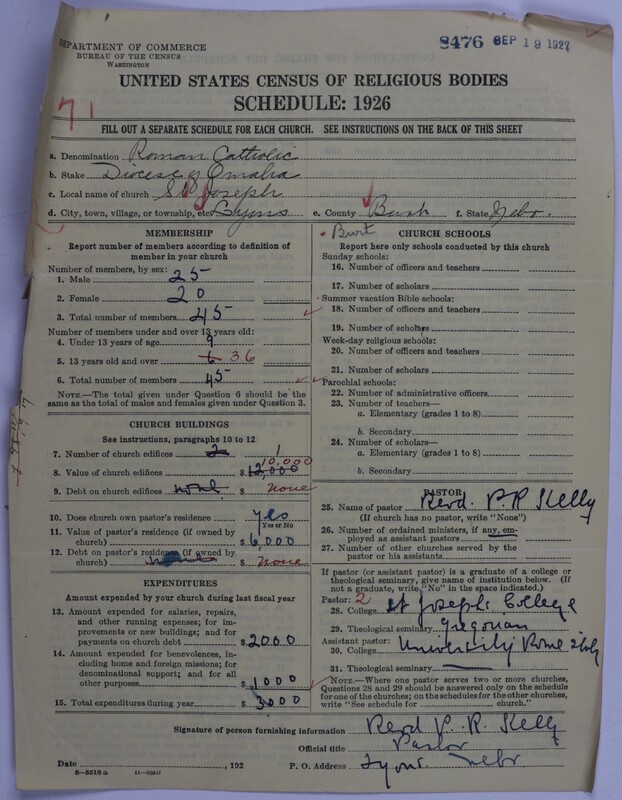 DEPARTMENT OF COMMERCE
BUREAU OF THE CENSUS
WASHINGTON
8476 SEP 19 1927
UNITED STATES CENSUS OF RELIGIOUS BODIES
SCHEDULE: 1926
71
FILL OUT A SEPARATE SCHEDULE FOR EACH CHURCH. SEE INSTRUCTIONS ON THE BACK OF THIS SHEET
a. Denomination Roman Catholic
b. Stake Diocese of Omaha
c. Local name of church St Joseph
d. City, town, village, or township, etc. Lyons e. County Burt f. State Nebr.
Burt
MEMBERSHIP
Report number of members according to definition of member in your church
Number of members, by sex:
1. Male 25
2. Female 20
3. Total number of members 45
Number of members under and over 13 years old:
4. Under 13 years of age 9
5. 13 years old and over 6 36
6. Total number of members 45
NOTE.—The total given under Question 6 should be the same as the total of males and females given under Question 3.
CHURCH BUILDINGS
See instructions, paragraphs 10 to 12
7. Number of church edifices 2 1
8. Value of church edifices $ 12,000 10,000
9. Debt on church edifices none $ none
10. Does church own pastor's residence yes
Yes or No
11. Value of pastor's residence (if owned by church) $ 6,000
12. Debt on pastor's residence (if owned by church) $ none
EXPENDITURES
Amount expended by your church during last fiscal year
13. Amount expended for salaries, repairs, and other running expenses; for improvements or new buildings; and for payments on church debt $ 2000
14. Amount expended for benevolences, including home and foreign missions; for denominational support; and for all other purposes $ 1000
15. Total expenditures during year $ 3000
CHURCH SCHOOLS
Report here only schools conducted by this church
Sunday schools:
16. Number of officers and teachers
17. Number of scholars
Summer vacation Bible schools:
18. Number of officers and teachers
19. Number of scholars
Week-day religious schools:
20. Number of officers and teachers
21. Number of scholars
Parochial schools:
22. Number of administrative officers
23. Number of teachers—
a. Elementary (grades 1 to 8)
b. Secondary
24. Number of scholars—
a. Elementary (grades 1 to 8)
b. Secondary
PASTOR
25. Name of pastor Revd. P. R. Kelly
(If church has no pastor, write "None")
26. Number of ordained ministers, if any, employed as assistant pastors
27. Number of other churches served by the pastor or his assistants
If pastor (or assistant pastor) is a graduate of a college or theological seminary, give name of institution below. (If not a graduate, write "No" in the space indicated.)
Pastor: 2
28. College St Joseph's College
29. Theological seminary Gregorian
Assistant pastor:
30. College University Rome Italy
31. Theological seminary
NOTE.—Where one pastor serves two or more churches, Questions 28 and 29 should be answered only on the schedule for one of the churches; on the schedules for the other churches, write "See schedule for church."
Signature of person furnishing information Revd P. R. Kelly
Official title Pastor
Date , 192 P. O. Address Lyons Nebr
8—5518a 11—9051f